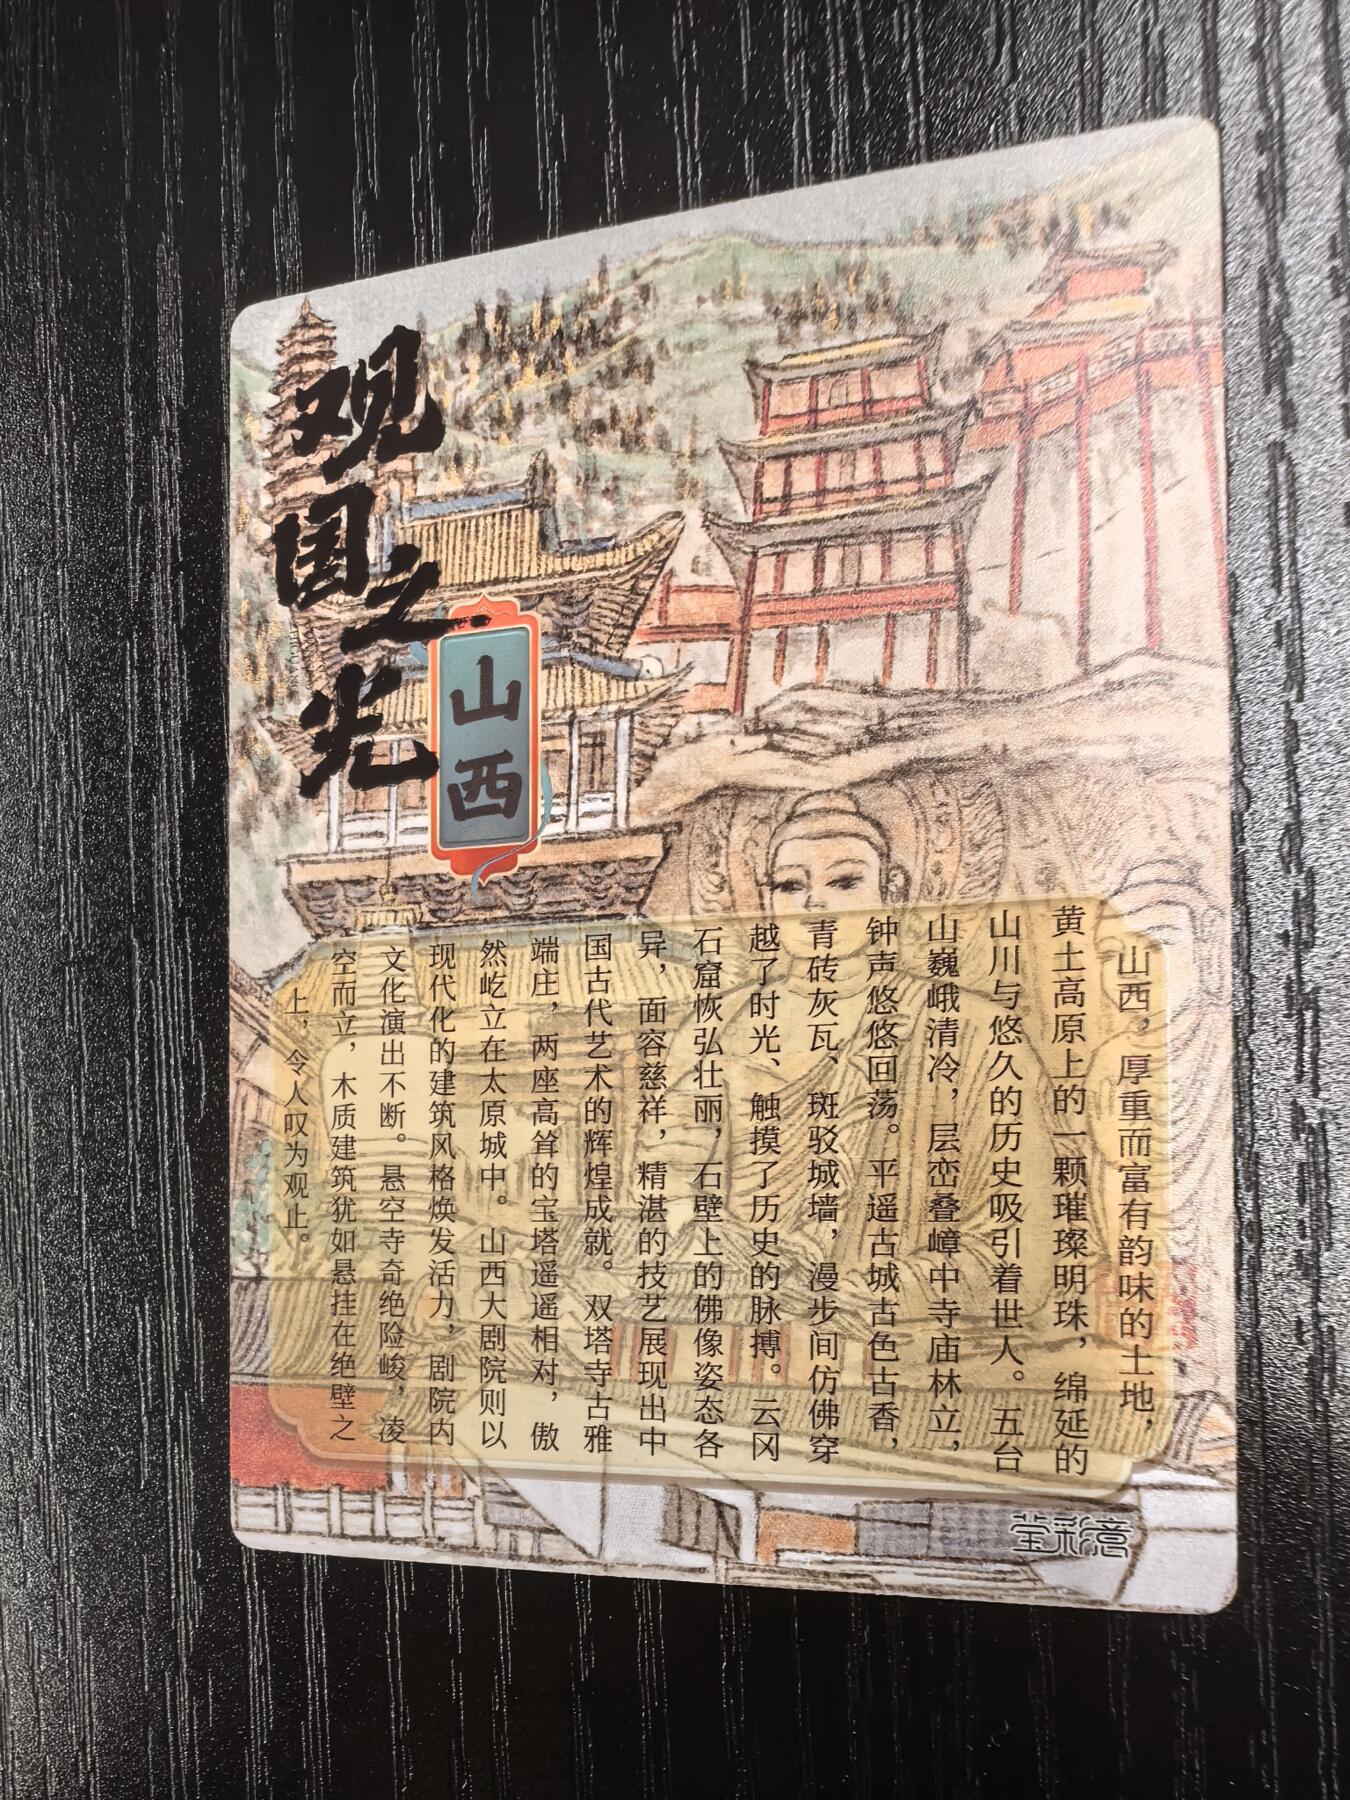 观国之光
山西
山西，厚重而富有韵味的土地，
黄土高原上的一颗璀璨明珠，绵延的
山川与悠久的历史吸引着世人。五台
山巍峨清冷，层峦叠嶂中寺庙林立，
钟声悠悠回荡。平遥古城古色古香，
青砖灰瓦、斑驳城墙，漫步间仿佛穿
越了时光、触摸了历史的脉搏。云冈
石窟恢弘壮丽，石壁上的佛像姿态各
异，面容慈祥，精湛的技艺展现出中
国古代艺术的辉煌成就。双塔寺古雅
端庄，两座高耸的宝塔遥遥相对，傲
然屹立在太原城中。山西大剧院则以
现代化的建筑风格焕发活力，剧院内
文化演出不断。悬空寺奇绝险峻，凌
空而立，木质建筑犹如悬挂在绝壁之
上，令人叹为观止。
莹彩意